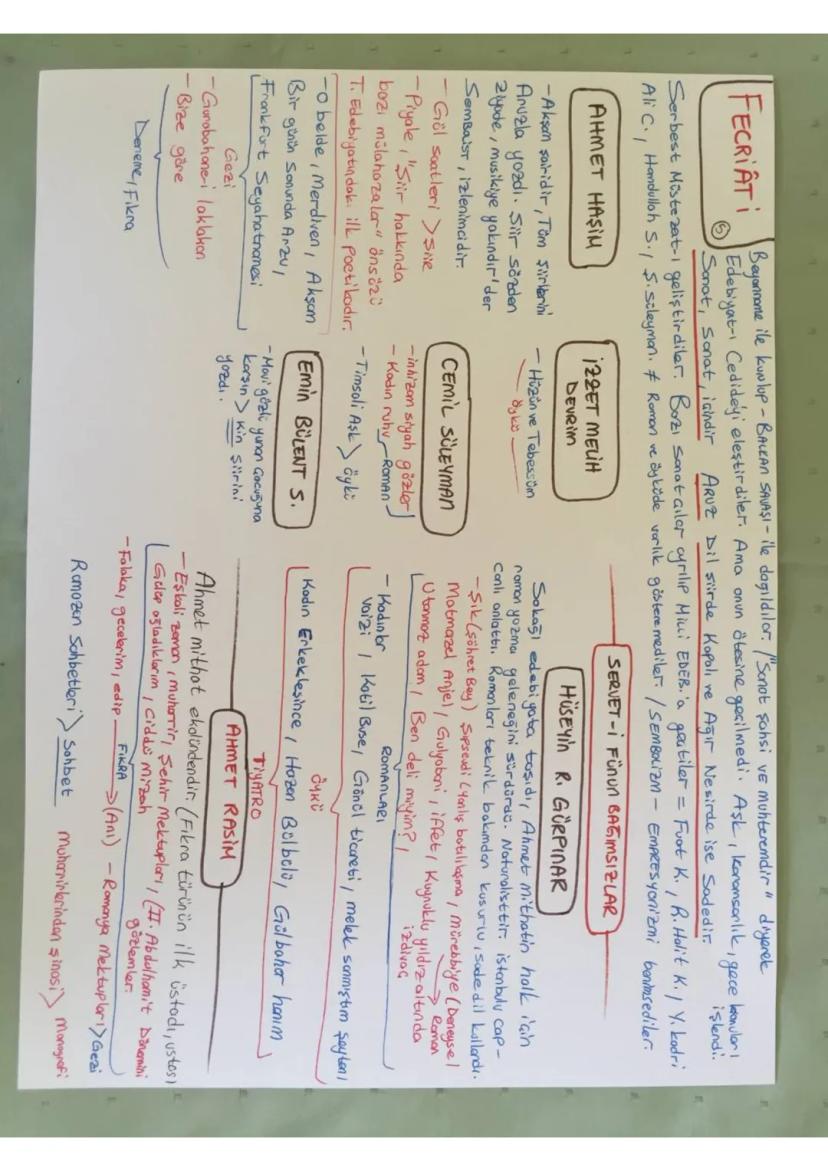 FECRİÂTİ
5
Beyanname ile kurulup - BALKAN SAVAŞI - ile dağıldılar. / "Sanat şahsi ve muhteremdir" diyerek
Edebiyat-ı Cedideyi eleştirdiler. Ama onun ötesine geçilmedi. Aşk, karamsarlık, gece konuları işlendi.
Sanat, sanat içindir ARUZ Dil şiirde Kapalı ve Ağır Nesirde ise Sadedir.
Serbest Müstezat-ı geliştirdiler. Bazı sanatçılar ayrılıp Milli EDEB.'a geçtiler = Fuat K. / R. Halit K. / Y. Kadri
Ali C., Hamdullah S. / Ş. Süleyman. ≠ Roman ve öyküde varlık gösteremediler. / SEMBOLİZM - EMPRESYONİZMİ benimsediler.
AHMET HAŞİM
- Akşam şairidir, Tüm şiirlerini
Aruzla yazdı. Şiir sözden
ziyade, musikiye yakındır'der
Sembolist, izlenimcidir.
- Göl saatleri > şiir
- Piyale, "Şiir hakkında
bazı mülahazalar" önsözü
T. Edebiyatındaki ilk poetikadır.
- O belde, Merdiven, Akşam
Bir günün Sonunda Arzu,
Frankfurt Seyahatnamesi
Gezi
- Gurabahane-i laklakan
- Bize göre
Deneme, Fıkra
İZZET MELİH
DEVRİM
- Hüzün ve Tebessüm
öykü
CEMİL SÜLEYMAN
- inhizam siyah gözler
- Kadın ruhu ROMAN
- Timsali Aşk > öykü
Emin BÜLENT S.
- Mavi gözlü yunan çocuğuna
karşın > Kin şiirini
yazdı.
SERVET-İ FÜNUN BAĞIMSIZLAR
HÜSEYİN R. GÜRPINAR
Sokağı edebiyata taşıdı, Ahmet Mithatın halk için
roman yazma geleneğini sürdürdü. Naturalisttir. İstanbulu cap-
canlı anlattı. Romanları teknik bakımdan kusurlu, sade dil kullandı.
- Şık (Şöhret Bey) Şıpsevdi (yanlış batılılaşma, mürebbiye (Deneysel Roman
Matmazel Anjel, Gulyabani, iffet, Kuyruklu yıldız altında izdivaç
Utanmaz adam, Ben deli miyim?,
ROMANLARI
- Kadınlar vaizi, Katil Buse, Gönül ticareti, melek sanmıştım şeytanı
ÖYKÜ
Kadın Erkekleşince, Hazan Bülbülü, Gülbahar hanım
TİYATRO
AHMET RASİM
Ahmet mithat ekolündendir. (Fıkra türünün ilk üstadı, ustası
- Eşkali zaman, muharrir, Şehir Mektupları, (II. Abdulhamit Dönemini gözlemler.
Gülüp ağladıklarım, Ciddü Mizah
FIKRA
- Falaka, gecelerim, edip → (Anı) - Romanya Mektupları > Gezi
Ramazan Sohbetleri > Sohbet muharrirlerinden şinasi > Monografi